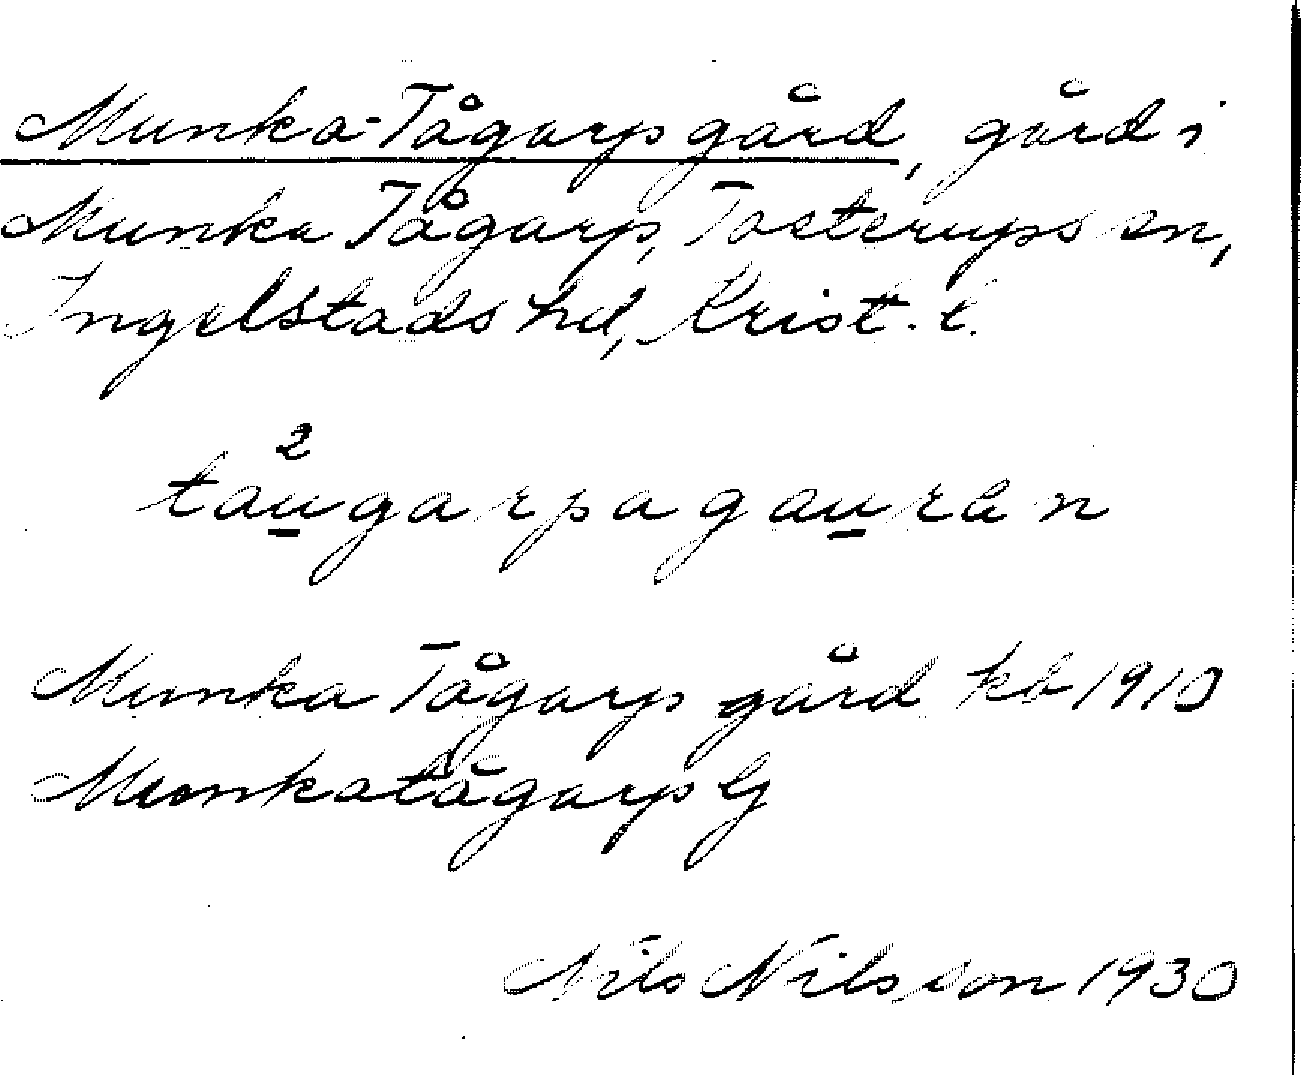 Munka-Tågarps gård, gård i
Munka Tågarp, Tosterups sn,
Ingelstads hd, Krist. l.
2
taugarpagauren
Munka Tågarps gård kb 1910
Munkatågarps G
Nils Nilsson 1930